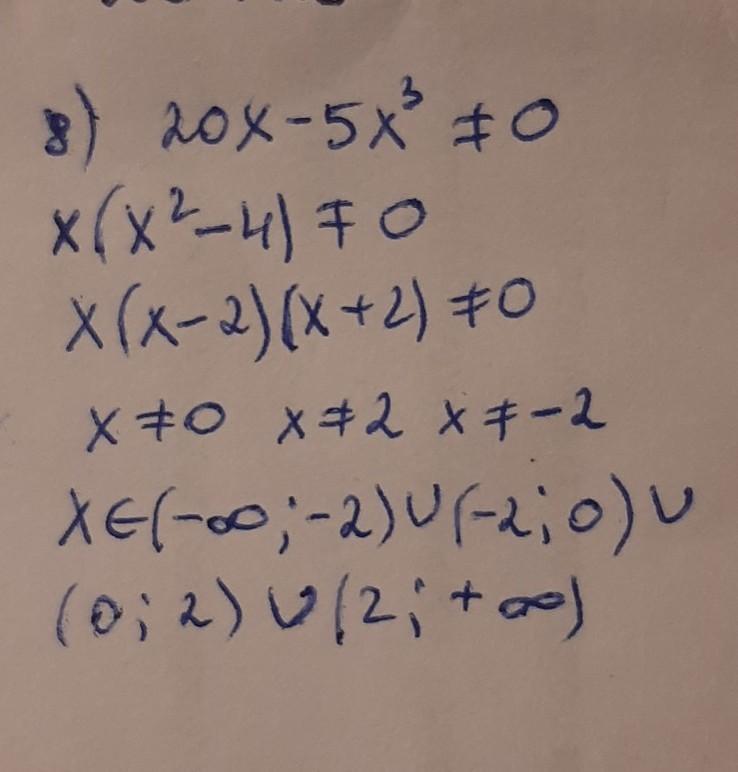 8) 20x-5x³ ≠0
x(x²-4) ≠ 0
x(x-2)(x+2) ≠0
x≠0 x≠2 x≠-2
x∈(-∞;-2)∪(-2;0)∪
(0;2)∪(2;+∞)